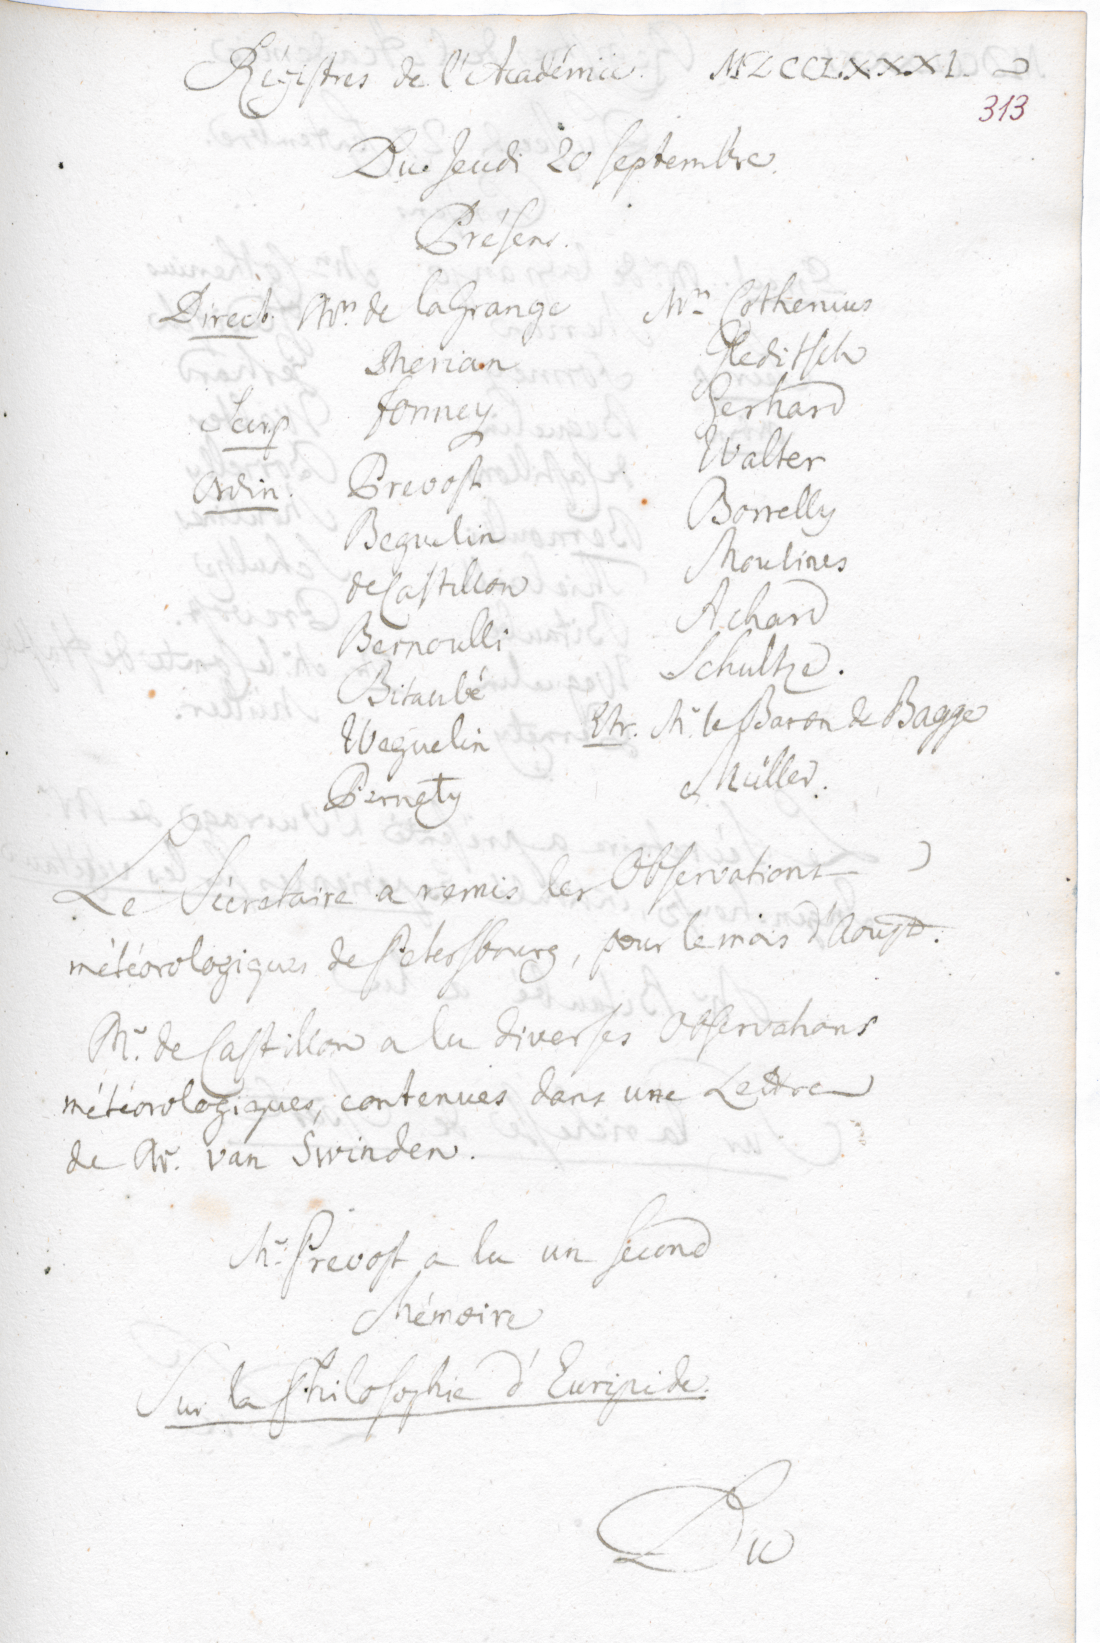 Régistres de l'Académie. MDCCLXXXI.
313
Du Jeudi 20 Septembre.
Présens.
Direct. Mrs. de la Grange
Merian
Formey.
Ordin. Prevost
Beguelin
de Castillon
Bernoulli
Bitaubé
Weguelin
Pernety
Mrs. Cothenius
Gleditsch
Gerhard
Walter
Borrelly
Moulines
Achard
Schultze.
Etr. Mr. le Baron de Bagge
Müller.
Le Sécretaire a remis les Observations
météorologiques de Petersbourg, pour le mois d'Aoust.
Mr. de Castillon a lu diverses Observations
météorologiques, contenues dans une Lettre
de Mr. van Swinden.
Mr. Prevost a lu un second
Mémoire
Sur la Philosophie d'Euripide.
Du